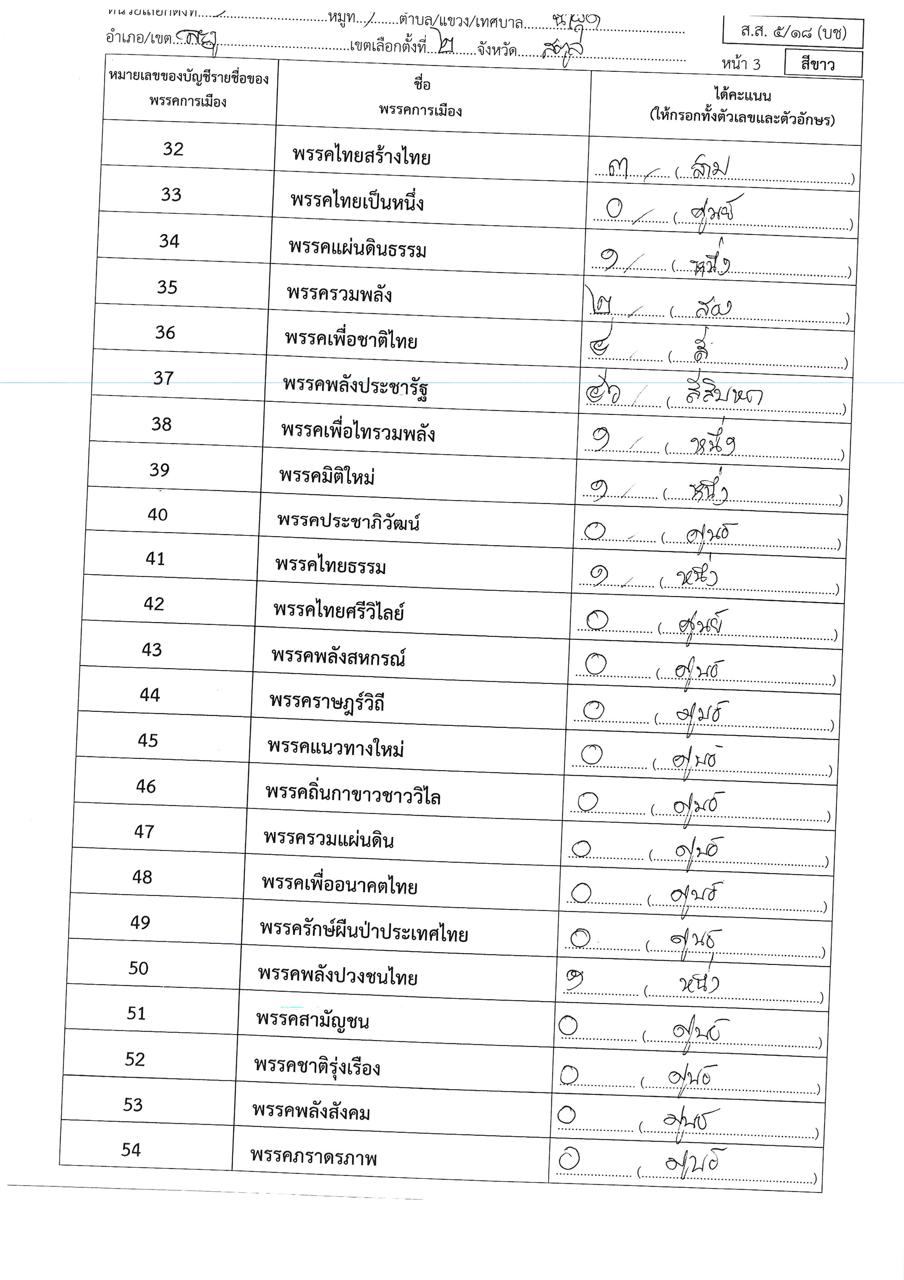 หมู่ที่ / ตำบล/แขวง/เทศบาล
ส.ส. ๕/๑๘ (บช)
อำเภอ/เขต เขตเลือกตั้งที่ ๒ จังหวัด สตูล
หน้า 3 สีขาว
หมายเลขของบัญชีรายชื่อของพรรคการเมือง ชื่อพรรคการเมือง ได้คะแนน (ให้กรอกทั้งตัวเลขและตัวอักษร)
32 พรรคไทยสร้างไทย ๓ / (สาม)
33 พรรคไทยเป็นหนึ่ง ๐ / (ศูนย์)
34 พรรคแผ่นดินธรรม ๑ / (หนึ่ง)
35 พรรครวมพลัง ๒ / (สอง)
36 พรรคเพื่อชาติไทย ๔ / (สี่)
37 พรรคพลังประชารัฐ ๔๖ / (สี่สิบหก)
38 พรรคเพื่อไทรวมพลัง ๑ / (หนึ่ง)
39 พรรคมิติใหม่ ๑ / (หนึ่ง)
40 พรรคประชาภิวัฒน์ ๐ / (ศูนย์)
41 พรรคไทยธรรม ๑ / (หนึ่ง)
42 พรรคไทยศรีวิไลย์ ๐ (ศูนย์)
43 พรรคพลังสหกรณ์ ๐ (ศูนย์)
44 พรรคราษฎร์วิถี ๐ (ศูนย์)
45 พรรคแนวทางใหม่ ๐ (ศูนย์)
46 พรรคถิ่นกาขาวชาววิไล ๐ (ศูนย์)
47 พรรครวมแผ่นดิน ๐ (ศูนย์)
48 พรรคเพื่ออนาคตไทย ๐ (ศูนย์)
49 พรรครักษ์ผืนป่าประเทศไทย ๐ (ศูนย์)
50 พรรคพลังปวงชนไทย ๑ (หนึ่ง)
51 พรรคสามัญชน ๐ (ศูนย์)
52 พรรคชาติรุ่งเรือง ๐ (ศูนย์)
53 พรรคพลังสังคม ๐ (ศูนย์)
54 พรรคภราดรภาพ ๐ (ศูนย์)